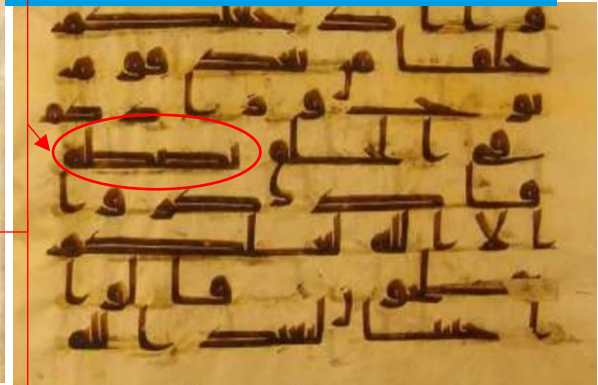 وا اذ جعلكم
خلفا من بعد قوم
نوح وزادكم
في الخلق بصطه
فاذكروا
الا الله لعلكم
تفلحون قالوا
اجئتنا لنعبد الله